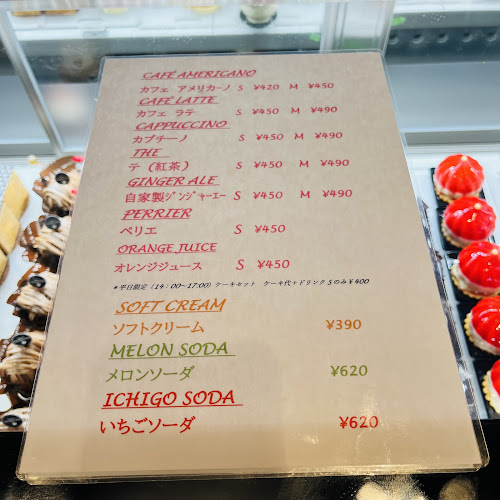 CAFÉ AMERICANO
カフェ アメリカーノ S ¥420 M ¥450
CAFÉ LATTE
カフェ ラテ S ¥450 M ¥490
CAPPUCCINO
カプチーノ S ¥450 M ¥490
THE
テ (紅茶) S ¥450 M ¥490
GINGER ALE
自家製ｼﾞﾝｼﾞｬｰエー S ¥450 M ¥490
PERRIER
ペリエ S ¥450
ORANGE JUICE
オレンジジュース S ¥450
*平日限定 (14：00~17:00) ケーキセット ケーキ代+ドリンク Sのみ¥400
SOFT CREAM
ソフトクリーム ¥390
MELON SODA
メロンソーダ ¥620
ICHIGO SODA
いちごソーダ ¥620